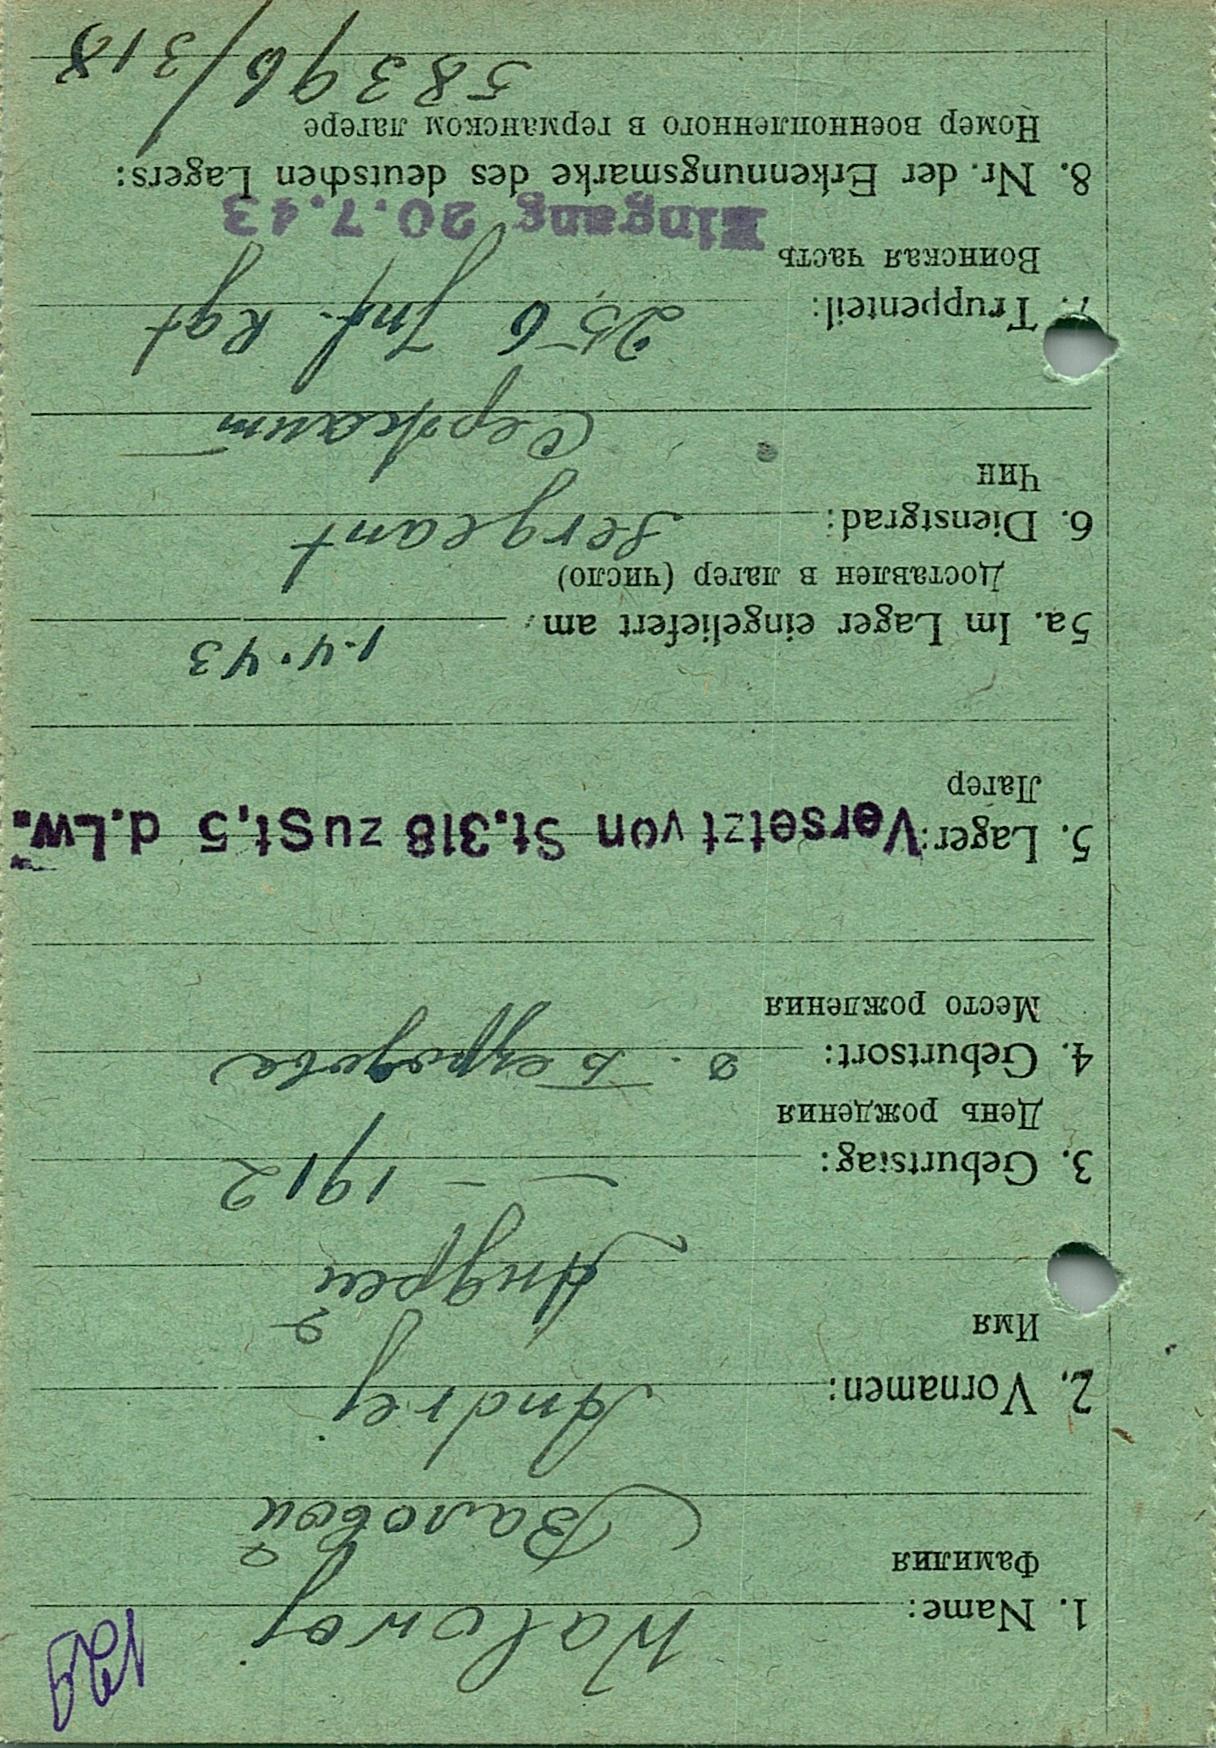 129
1. Name: Walowoj
Фамилия
Валовой
2. Vornamen: Andrej
Имя
Андрей
3. Geburtstag: — — 1912
День рождения
4. Geburtsort:
Место рождения
5. Lager: Versetzt von St.318 zu St,5 d.Lw.
Лагер
5a. Im Lager eingeliefert am 1.4.43
Доставлен в лагер (число)
6. Dienstgrad: Sergeant
Чин
Сержант
7. Truppenteil: 256 Inf. Rgt
Воинская часть
Eingang 20.7.43
8. Nr. der Erkennungsmarke des deutschen Lagers:
Номер военнопленного в германском лагере
58396/318